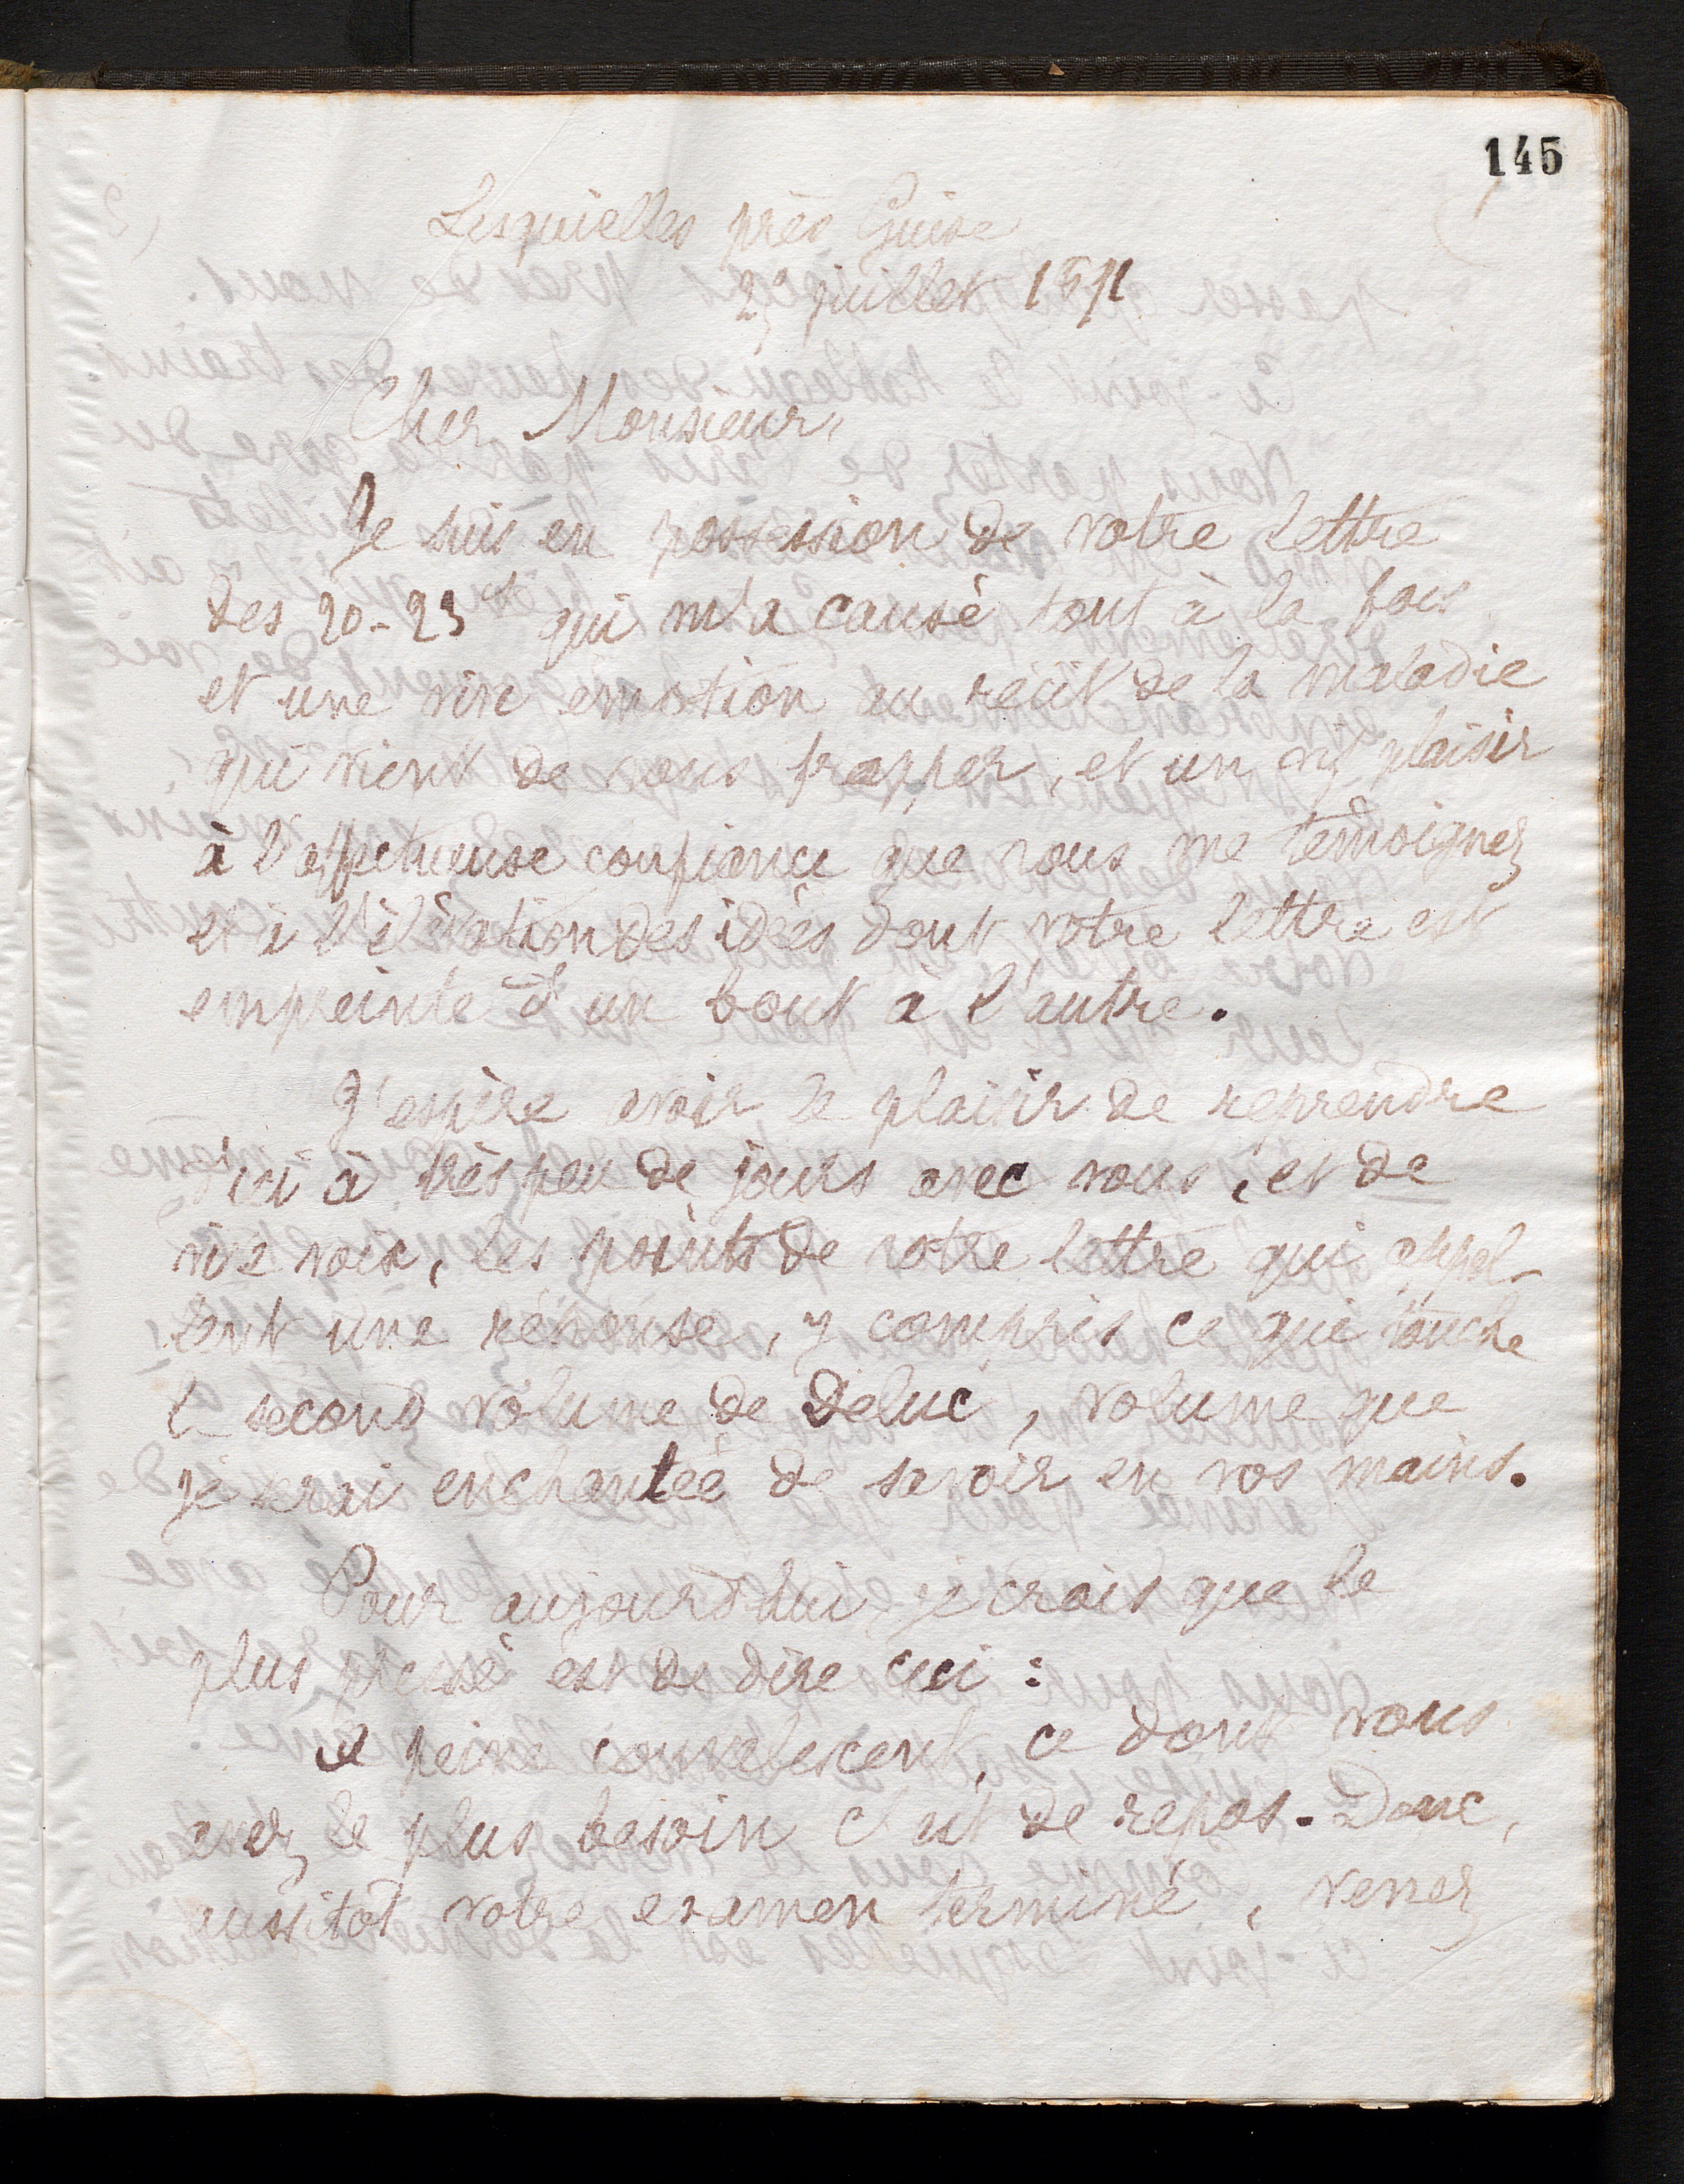 145
Lesquielles près Guise
25 juillet 1891
Cher Monsieur,
Je suis en possession de votre lettre
des 20-23 ct qui m'a causé tout à la fois
et une vive émotion au récit de la maladie
qui vient de vous frapper, et un vif plaisir
à l'affectueuse confiance que vous me témoignez
et à l'élévation des idées dont votre lettre est
empreinte d'un bout à l'autre.
J'espère avoir le plaisir de reprendre
d'ici à très peu de jours avec vous, et de
vive voix, les points de votre lettre qui appel-
lent une réponse, y compris ce qui touche
le second volume de Deluc, volume que
je serai enchantée de savoir en vos mains.
Pour aujourd'hui, je crois que le
plus pressé est de dire ceci :
A peine convalescent, ce dont vous
avez le plus besoin c'est de repos. Donc,
aussitôt votre examen terminé, venez